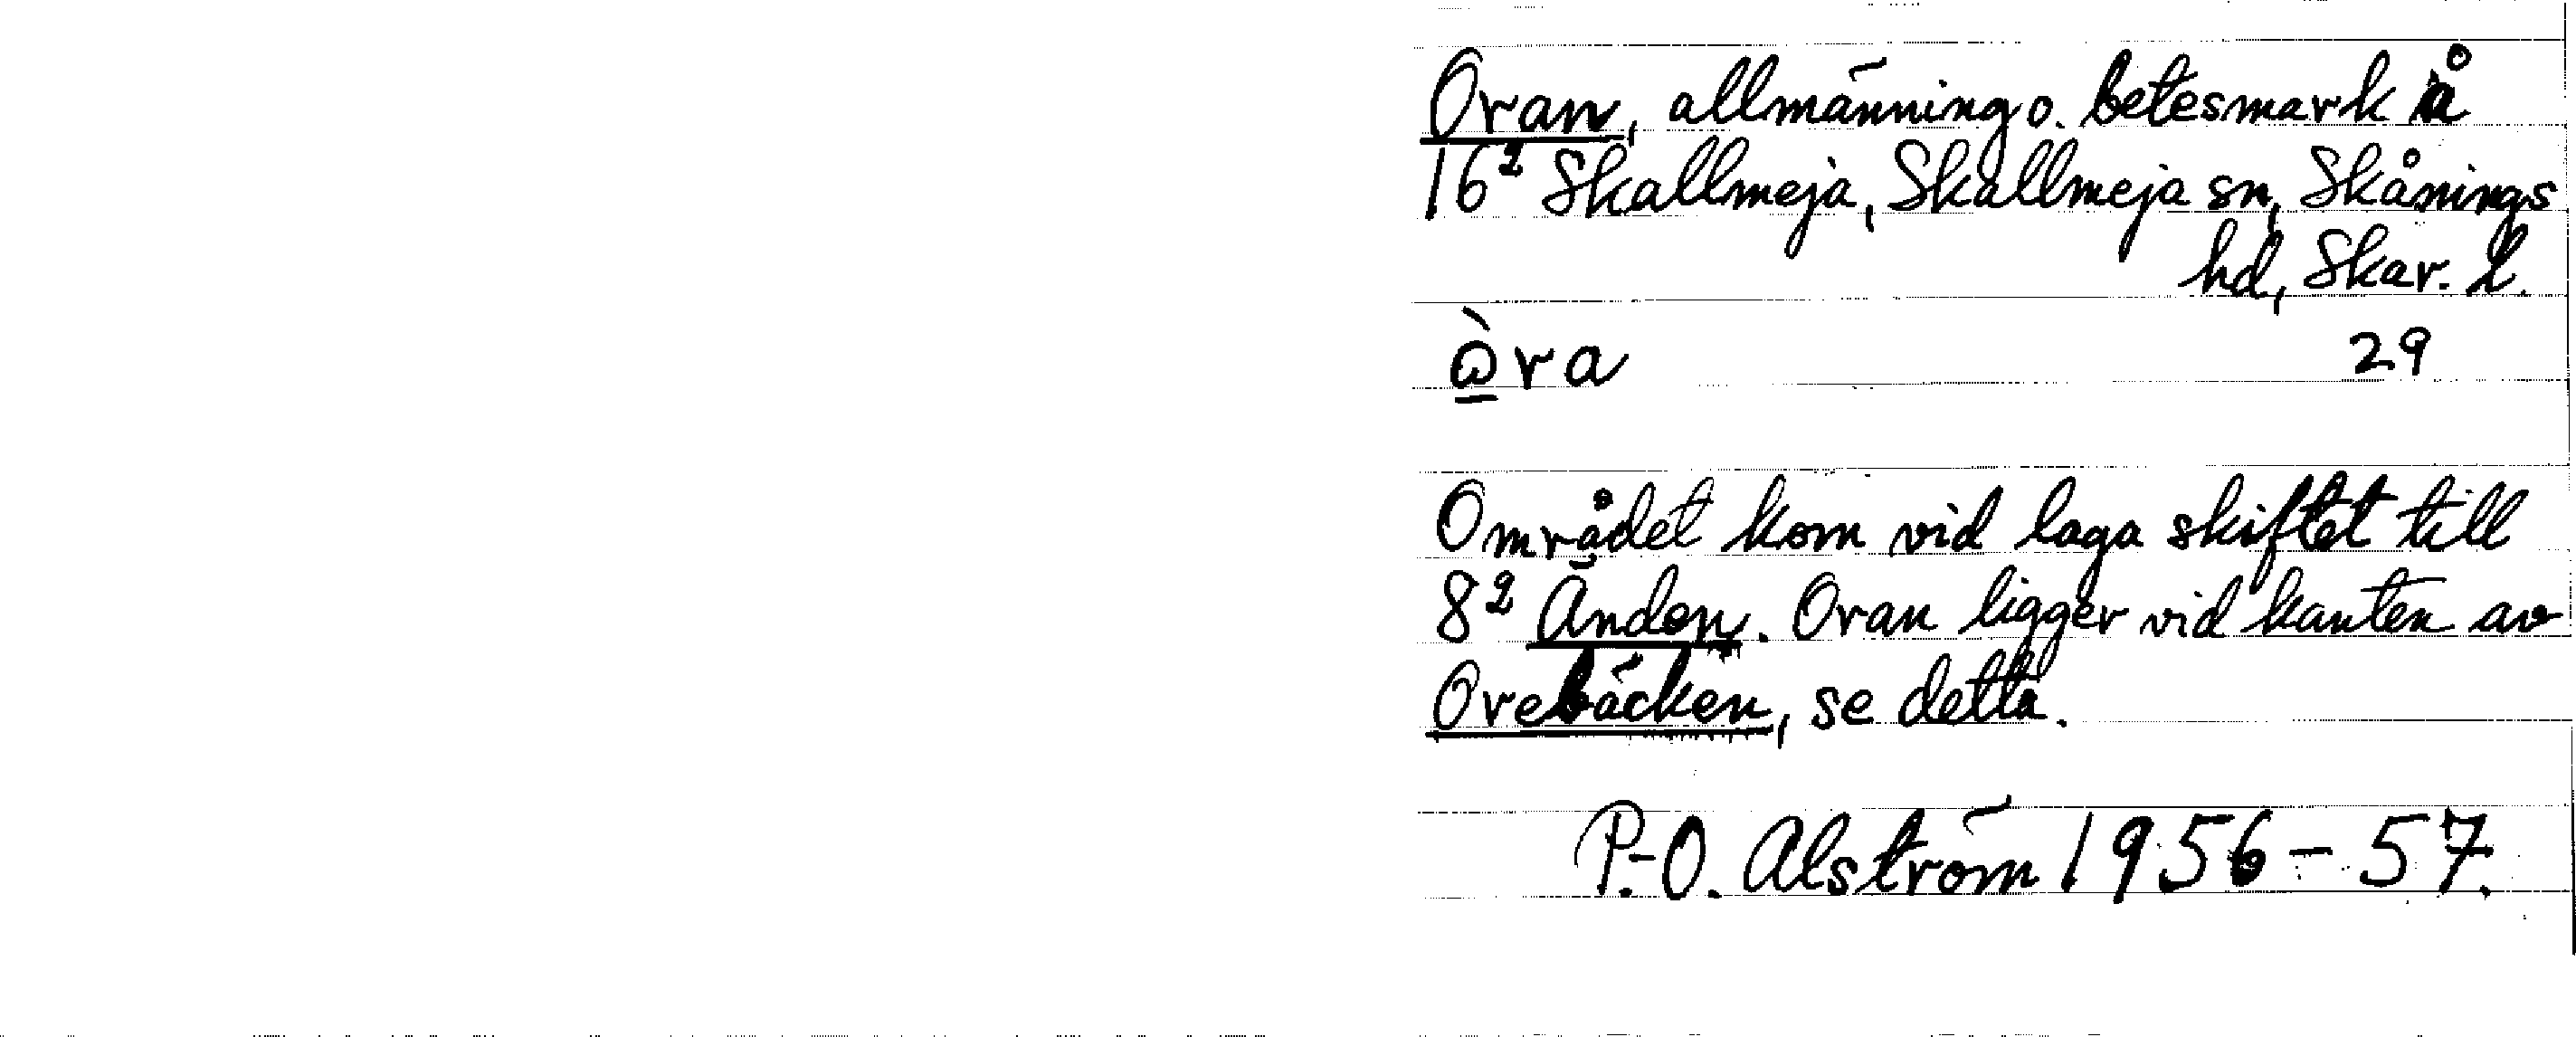 Oran, allmänning o. betesmark å
16² Skallmeja, Skallmeja sn, Skånings
hd, Skar. l.
ὼ̲ra 29
Området kom vid laga skiftet till
8² Änden. Oran ligger vid kanten av
Orebäcken, se detta.
P.-O. Alström 1956-57.